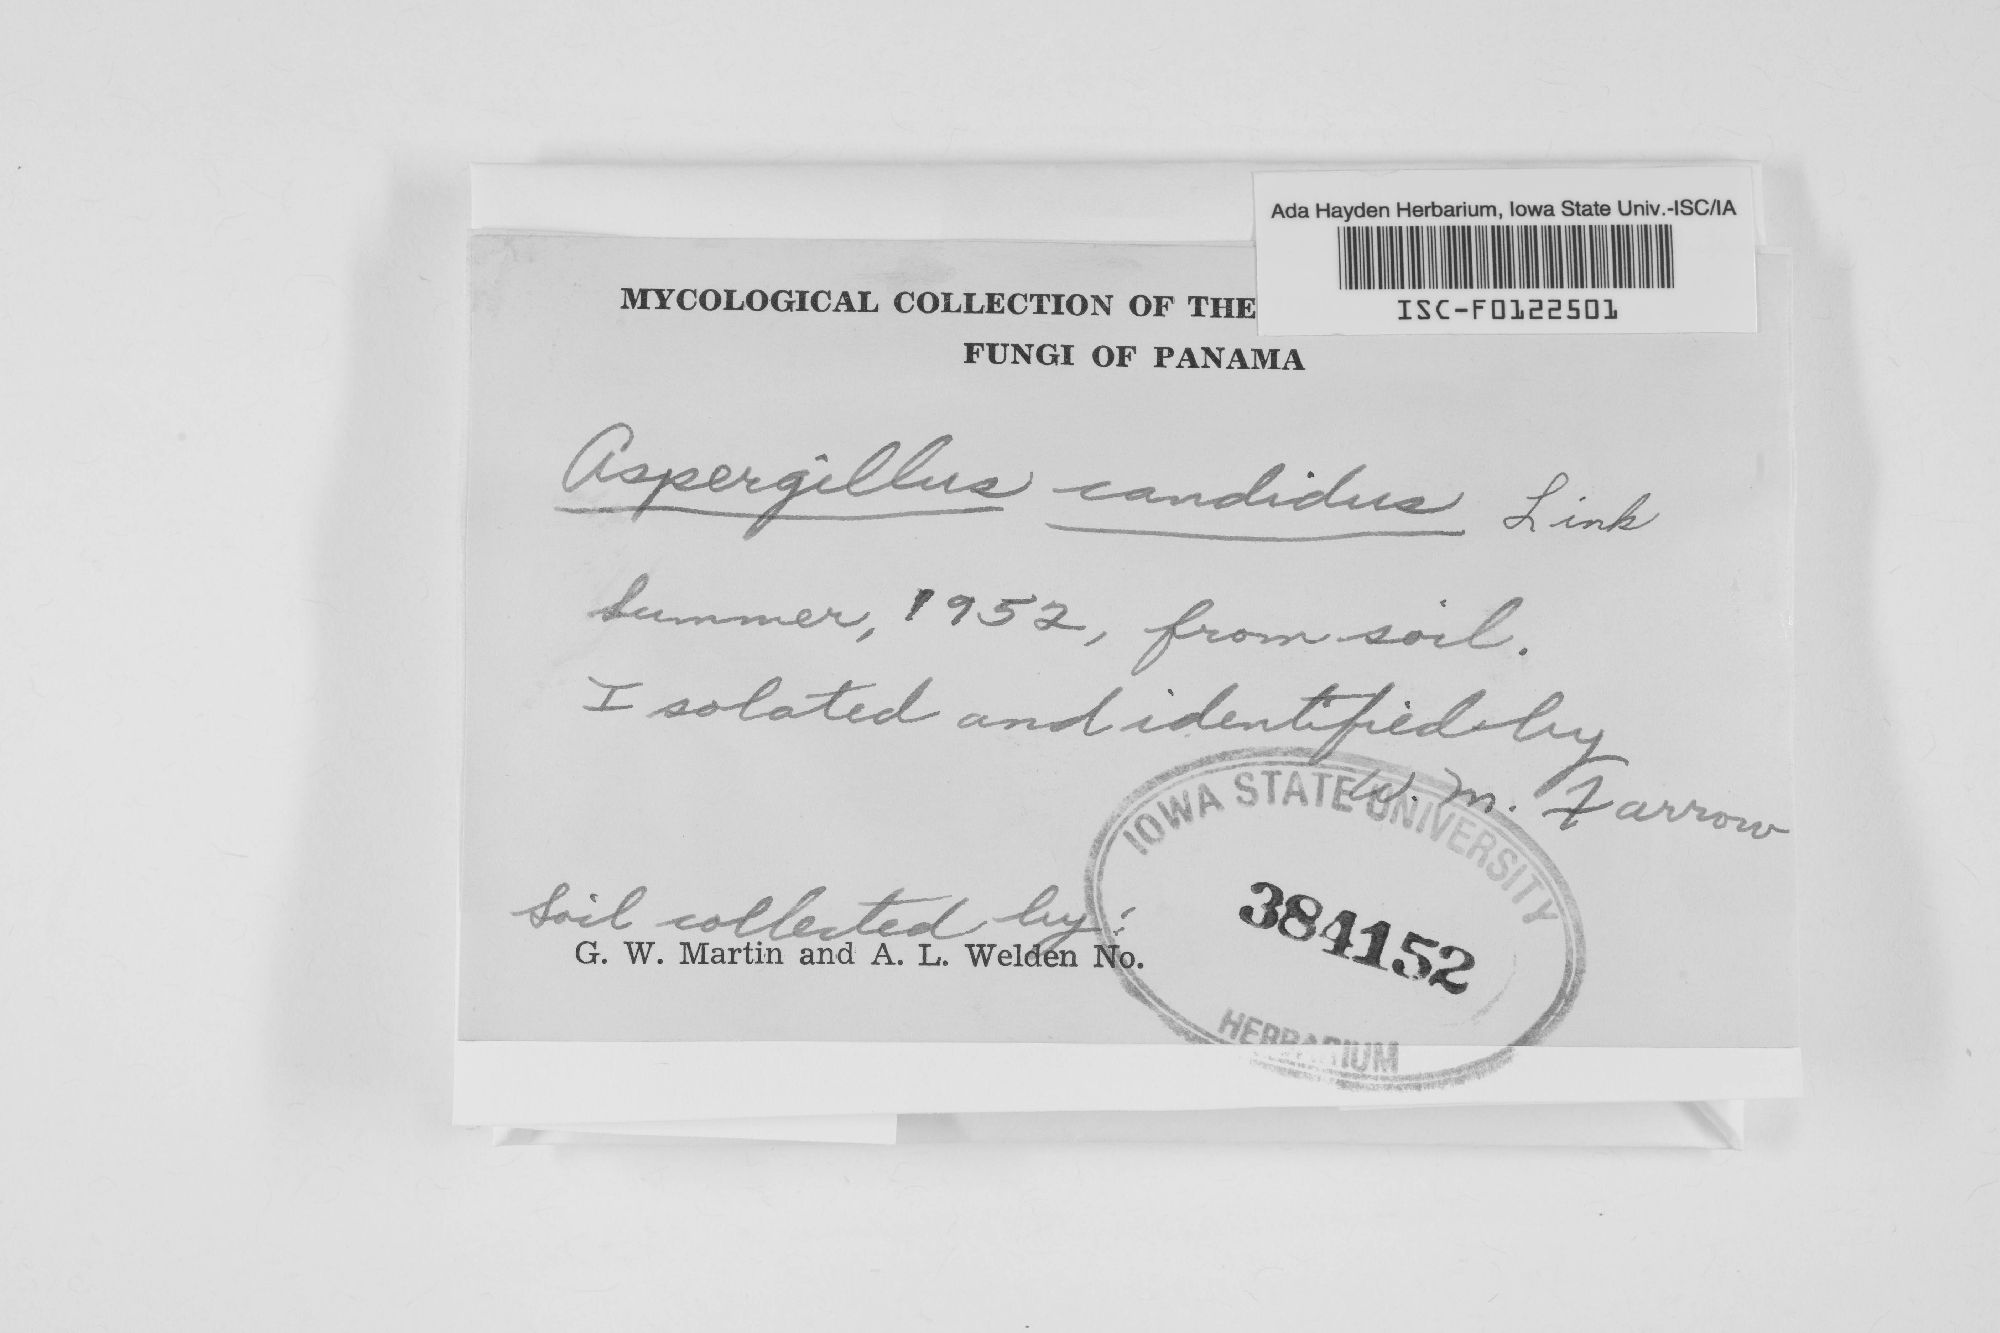 Ada Hayden Herbarium, Iowa State Univ.-ISC/IA
ISC-F0122501
MYCOLOGICAL COLLECTION OF THE
FUNGI OF PANAMA
Aspergillus candidus Link
Summer, 1952, from soil.
Isolated and identified by
W. M. Farrow
Soil collected by:
G. W. Martin and A. L. Welden No.
IOWA STATE UNIVERSITY
384152
HERBARIUM